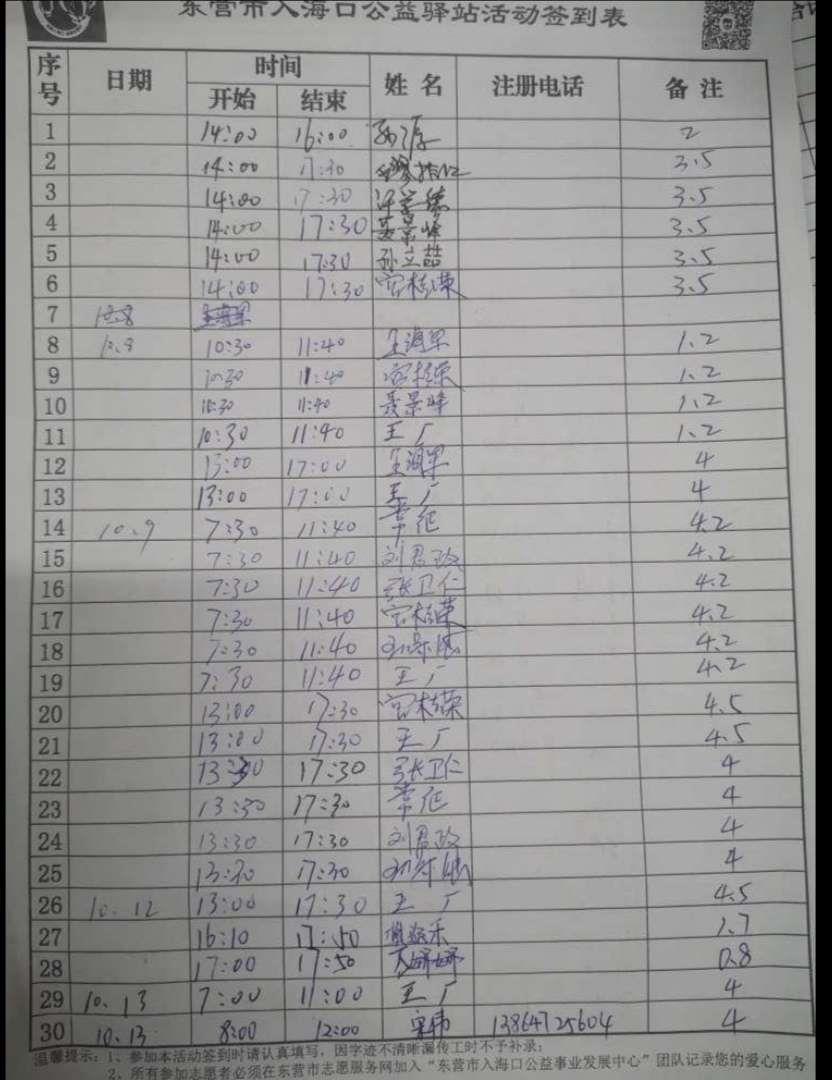 东营市入海口公益驿站活动签到表
序号 日期 时间 姓名 注册电话 备注
开始 结束
1 14:00 16:00 2
2 14:00 17:30 3.5
3 14:00 17:30 3.5
4 14:00 17:30 聂景峰 3.5
5 14:00 17:30 孙立喆 3.5
6 14:00 17:30 宫桂荣 3.5
7 10.8
8 10.8 10:30 11:40 1.2
9 10:30 11:40 宫桂荣 1.2
10 10:30 11:40 聂景峰 1.2
11 10:30 11:40 王广 1.2
12 13:00 17:00 4
13 13:00 17:00 王广 4
14 10.9 7:30 11:40 常征 4.2
15 7:30 11:40 刘君政 4.2
16 7:30 11:40 张卫仁 4.2
17 7:30 11:40 宫桂荣 4.2
18 7:30 11:40 4.2
19 7:30 11:40 王广 4.2
20 13:00 17:30 宫桂荣 4.5
21 13:00 17:30 王广 4.5
22 13:30 17:30 张卫仁 4
23 13:30 17:30 常征 4
24 13:30 17:30 刘君政 4
25 13:30 17:30 4
26 10.12 13:00 17:30 王广 4.5
27 16:10 17:50 1.7
28 17:00 17:50 0.8
29 10.13 7:00 11:00 王广 4
30 10.13 8:00 12:00 13864725604 4
温馨提示：1、参加本活动签到时请认真填写，因字迹不清晰漏传工时不予补录；
2、所有参加志愿者必须在东营市志愿服务网加入“东营市入海口公益事业发展中心”团队记录您的爱心服务